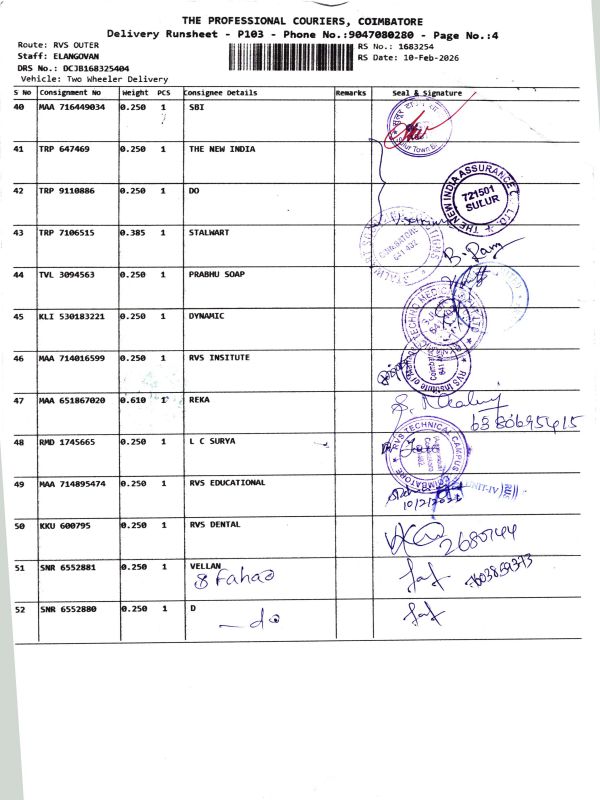 THE PROFESSIONAL COURIERS, COIMBATORE
Delivery Runsheet - P103 - Phone No.:9047080280 - Page No.:4
Route: RVS OUTER
RS No.: 1683254
Staff: ELANGOVAN
RS Date: 10-Feb-2026
DRS No.: DCJB168325404
Vehicle: Two Wheeler Delivery
S No Consignment No Weight PCS Consignee Details Remarks Seal & Signature
40 MAA 716449034 0.250 1 SBI
41 TRP 647469 0.250 1 THE NEW INDIA
42 TRP 9110886 0.250 1 DO
THE NEW INDIA ASSURANCE
721501
SULUR
43 TRP 7106515 0.385 1 STALWART
COIMBATORE
44 TVL 3094563 0.250 1 PRABHU SOAP
45 KLI 530183221 0.250 1 DYNAMIC
46 MAA 714016599 0.250 1 RVS INSITUTE
47 MAA 651867020 0.610 1 REKA
6380695415
48 RMD 1745665 0.250 1 L C SURYA
RVS TECHNICAL CAMPUS
COIMBATORE
49 MAA 714895474 0.250 1 RVS EDUCATIONAL
UNIT-IV
50 KKU 600795 0.250 1 RVS DENTAL
2680744
51 SNR 6552881 0.250 1 VELLAN
Fahad
52 SNR 6552880 0.250 1 D
do